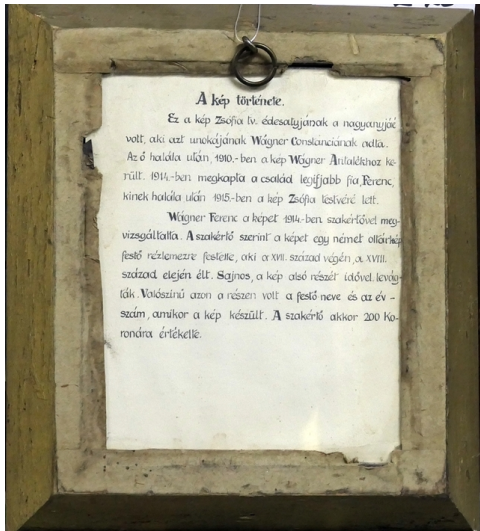 A kép története.
Ez a kép Zsófia tv. édesatyjának a nagyanyjáé
volt, aki azt unokájának Wágner Constanciának adta.
Az ő halála után, 1910.-ben a kép Wágner Antalékhoz ke-
rült. 1914.-ben megkapta a család legifjabb fia, Ferenc,
kinek halála után 1915.-ben a kép Zsófia testvéré lett.
Wágner Ferenc a képet 1914-ben szakértővel meg-
vizsgáltatta. A szakértő szerint a képet egy német oltárkép
festő rézlemezre festette, aki a XVII. század végén, a XVIII.
század elején élt. Sajnos, a kép alsó részét idővel levág-
ták. Valószínű azon a részen volt a festő neve és az év-
szám, amikor a kép készült. A szakértő akkor 200 Ko-
ronára értékelte.